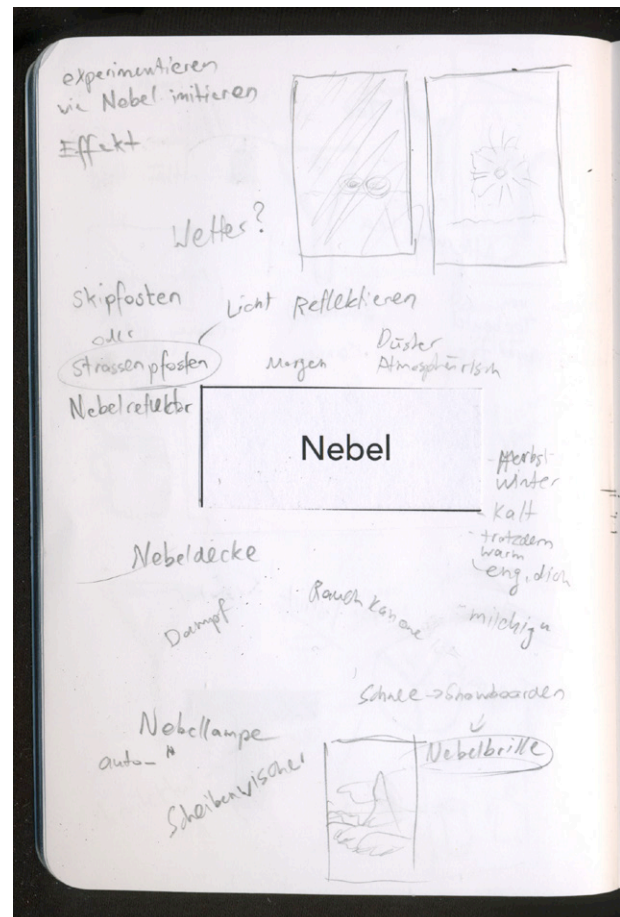 experimentieren
wie Nebel imitieren
Effekt
Wetter?
Skipfosten
oder
Strassenpfosten
Licht Reflektieren
Morgen
Düster
Atmosphärisch
Nebelreflektor
Nebel
- Herbst
Winter
- Kalt
- trotzdem
warm
eng, dich
- milchig
Nebeldecke
Dampf
Rauchkanone
Schnee -> Snowboarden
Nebelbrille
Nebellampe
auto- "
Scheibenwischer